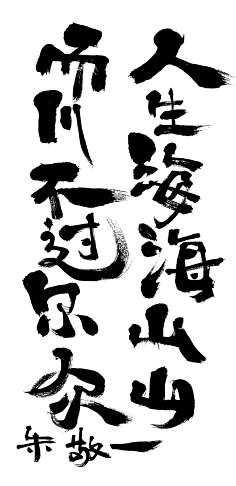 人生海海山山
而川不过尔尔
朱敬一